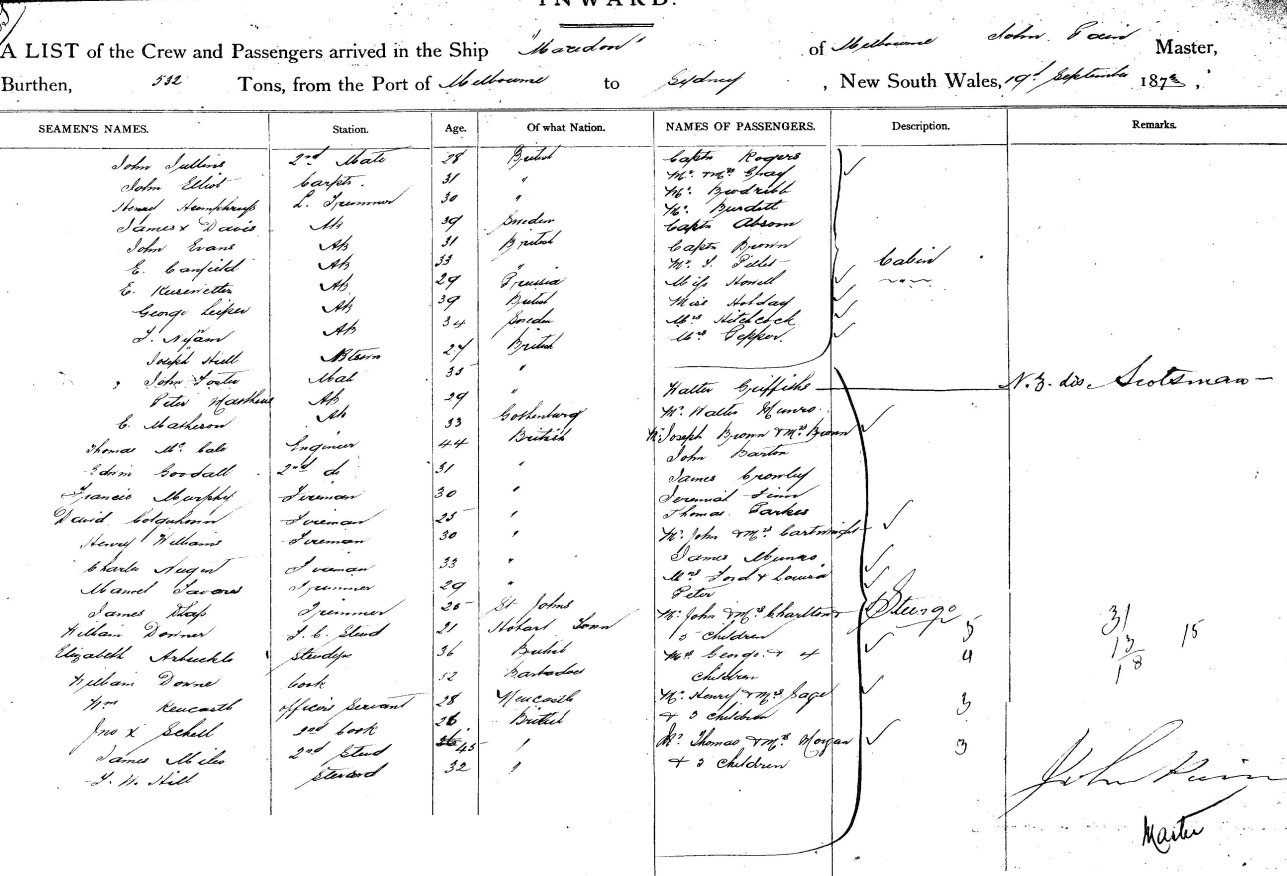 INWARD.
A LIST of the Crew and Passengers arrived in the Ship "Macedon" of Melbourne John Pain Master,
Burthen, 532 Tons, from the Port of Melbourne to Sydney, New South Wales, 19th September 187
SEAMEN'S NAMES. Station. Age. Of what Nation. NAMES OF PASSENGERS. Description. Remarks.
John Jullins 2nd Mate 28 British Captn Rogers
John Elliot Carptr. 31 " Mr. & Mrs Gray
Henry Humphreys L. Trimmer 30 " Mr. Bindribb
James x Davis AB 39 Sweden Mr. Burdett
John Evans AB 31 British Captn Absom
E. Canfield AB 33 " Captn Brown
E. AB 29 Prussia Mr. J. Cabin
George Leiper AB 39 British Miss Howell
J. Nyam AB 34 Sweden Miss Holday
Joseph Hill 27 British Mrs Hitchcock
John Foster Mate 35 " Mrs Pepper.
Peter AB 29 " Walter Griffiths N.Z. dis. Scotsman
E. Matheson AB 33 Gothenburg Mr. Walter Munro.
Thomas Mc Cale Engineer 44 British Mr Joseph Brown & Mrs Brown
Edwin Goodall 2nd do 31 " John Barton
Francis Murphy Fireman 30 " James Crowley
David Colquhoun Fireman 25 " Jeremiah Finn
Henry Williams Fireman 30 " Thomas Parkes
Charles Nugent Fireman 33 " Mr. John & Mrs Cartwright
Manuel Tavares Trimmer 29 " James Munro
James Trimmer 25 St Johns Mrs Ford & Louisa
William Downer F. C. Stewd 21 Hobart Town Peter
Elizabeth Arbuckle Stewdess 36 British Mr. John & Mrs Charlton & Steerage 31
William Downe Cook 52 Barbadoes 5 children 5 13 15
Wm Kencarth officers Servant 28 Newcastle Mrs George & 4 4 18
Jno x Schell 2nd Cook 26 British children
James Miles 2nd Stewd 45 " Mr. Henry & Mrs Page
J. W. Hill Steward 32 " & 3 children 3
Mr Thomas & Mrs Morgan
& 3 children 3
John Pain
Master